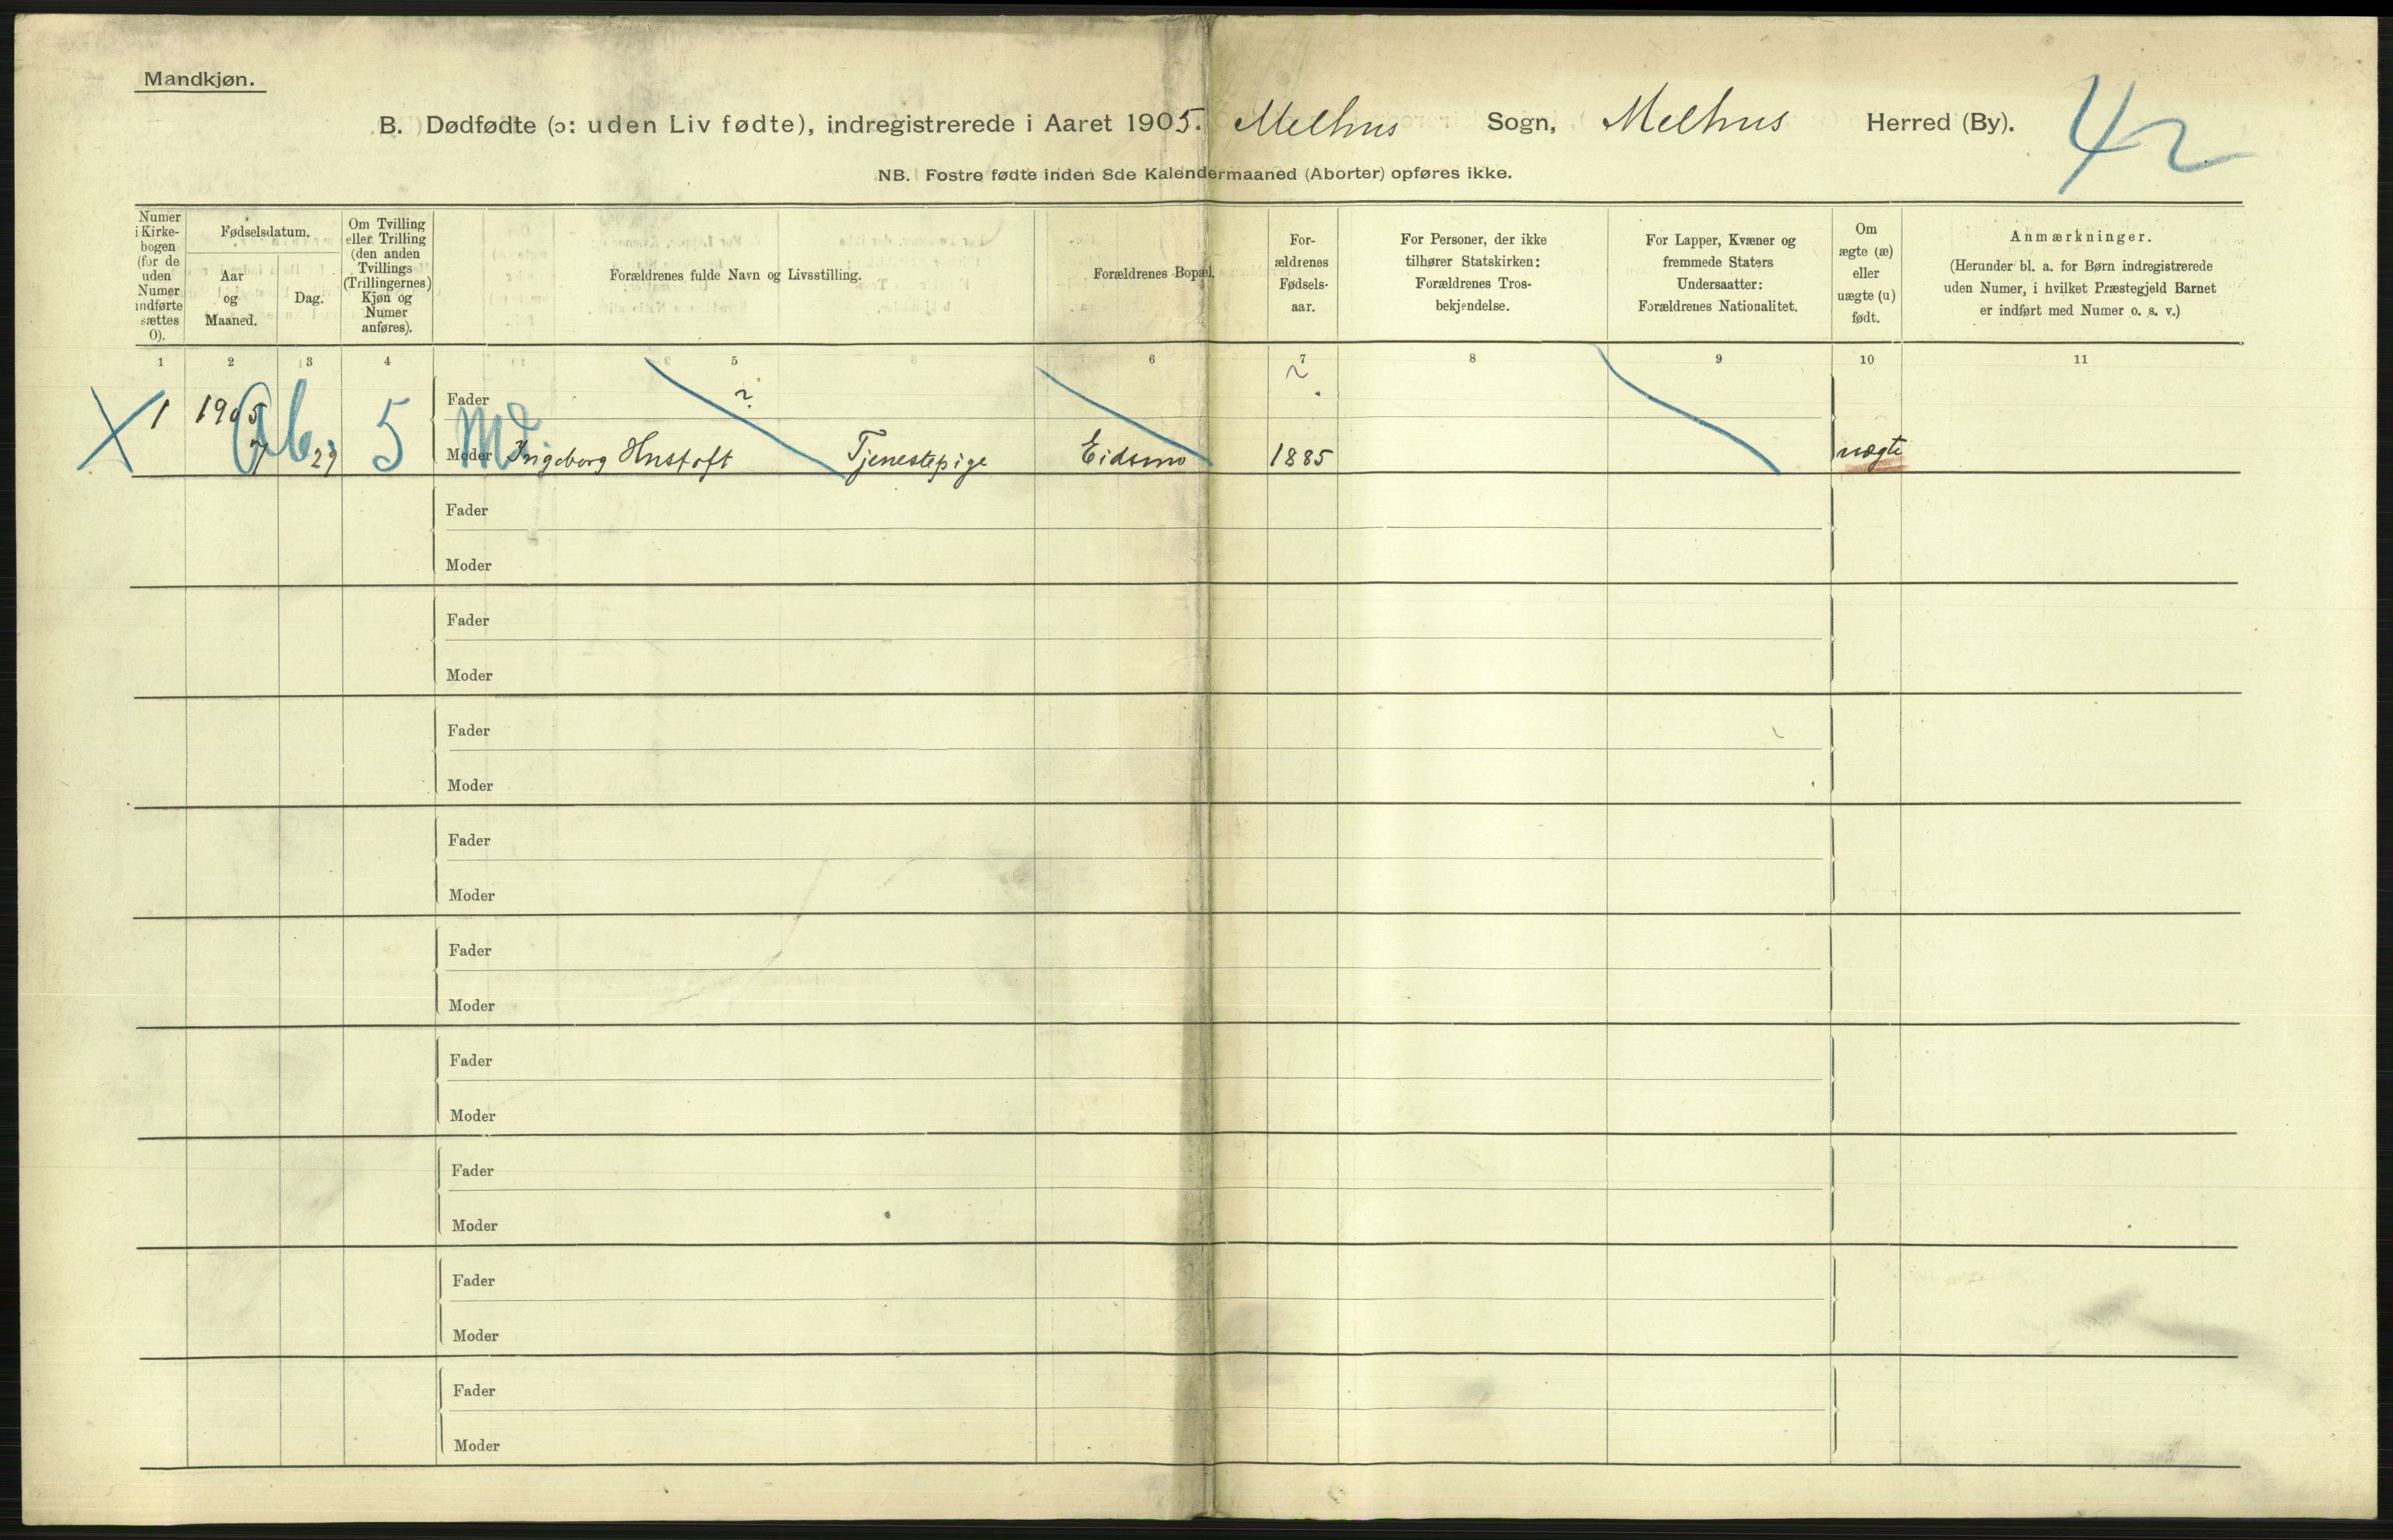 Mandkjøn.
B. Dødfødte (ɔ: uden Liv fødte), indregistrerede i Aaret 1905. Melhus Sogn, Melhus Herred (By).
42
NB. Fostre fødte inden 8de Kalendermaaned (Aborter) opføres ikke.
Numer
i Kirke-
bogen
(for de
uden
Numer
indførte
sættes
0).
Fødselsdatum.
Aar
og
Maaned.
Dag.
Om Tvilling
eller Trilling
(den anden
Tvillings
(Trillingernes)
Kjøn og
Numer
anføres).
Forældrenes fulde Navn og Livsstilling.
Forældrenes Bopæl.
For-
ældrenes
Fødsels-
aar.
For Personer, der ikke
tilhører Statskirken:
Forældrenes Tros-
bekjendelse.
For Lapper, Kvæner og
fremmede Staters
Undersaatter:
Forældrenes Nationalitet.
Om
ægte (æ)
eller
uægte (u)
født.
Anmærkninger.
(Herunder bl. a. for Børn indregistrerede
uden Numer, i hvilket Præstegjeld Barnet
er indført med Numer o. s. v.)
1 2 3 4 5 6 7 8 9 10 11
Fader ? ?
1 1905 5
7 29 Moder Ingeborg Hustoft Tjenestepige Eidsmo 1885 uægte
Fader
Moder
Fader
Moder
Fader
Moder
Fader
Moder
Fader
Moder
Fader
Moder
Fader
Moder
Fader
Moder
Fader
Moder